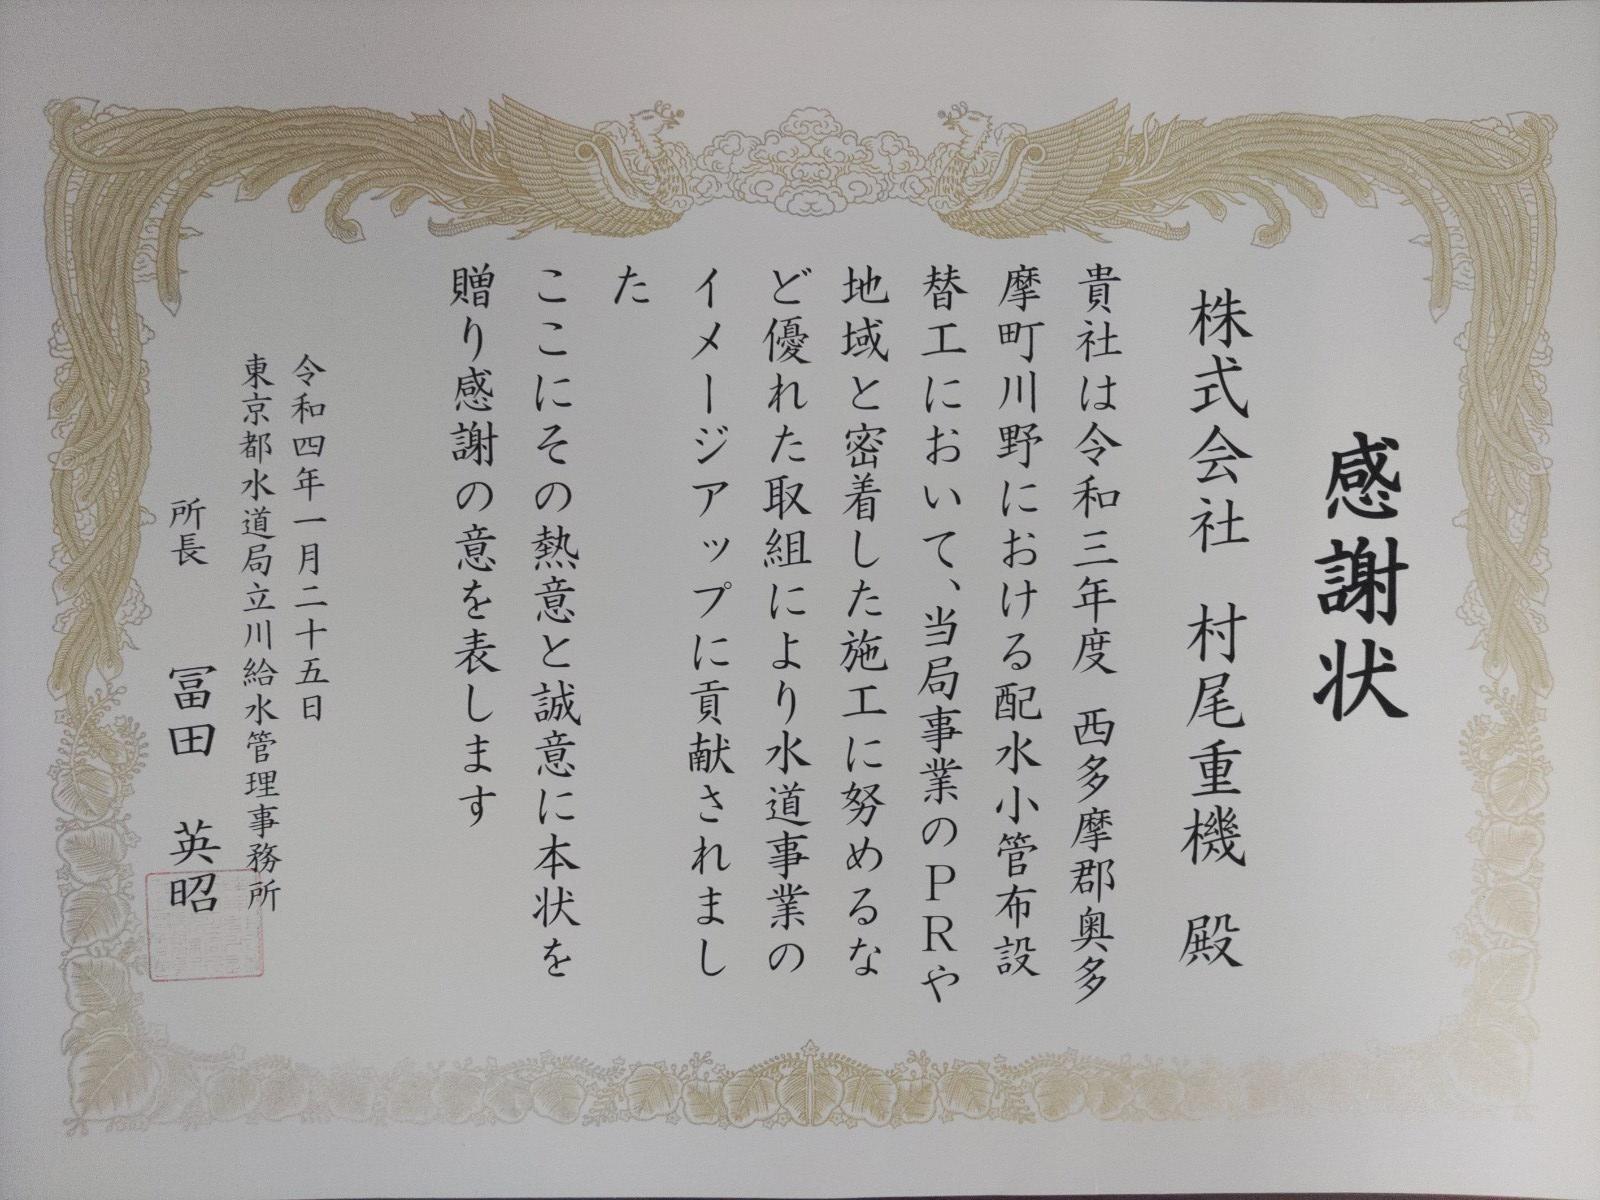 感謝状
株式会社　村尾重機　殿
貴社は令和三年度　西多摩郡奥多
摩町川野における配水小管布設
替工において、当局事業のＰＲや
地域と密着した施工に努めるな
ど優れた取組により水道事業の
イメージアップに貢献されまし
た
ここにその熱意と誠意に本状を
贈り感謝の意を表します
令和四年一月二十五日
東京都水道局立川給水管理事務所
所長　冨田　英昭